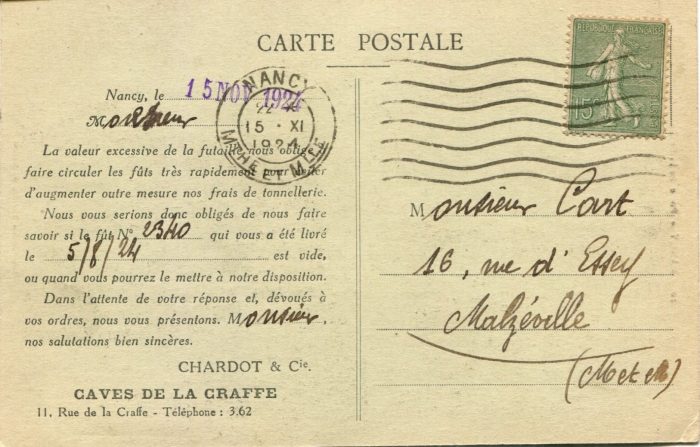 CARTE POSTALE
RÉPUBLIQUE FRANÇAISE
15c
NANCY
15 · XI
1924
MTHE ET MLLE
Nancy, le 15 NOV 1924
Monsieur
La valeur excessive de la futaille nous oblige
faire circuler les fûts très rapidement pour éviter
d'augmenter outre mesure nos frais de tonnellerie.
Nous vous serions donc obligés de nous faire
savoir si le fût N° 2340 qui vous a été livré
le 5/8/24 est vide,
ou quand vous pourrez le mettre à notre disposition.
Dans l'attente de votre réponse et, dévoués à
vos ordres, nous vous présentons. Monsieur,
nos salutations bien sincères.
CHARDOT & Cie.
CAVES DE LA CRAFFE
11, Rue de la Craffe - Téléphone : 3.62
Monsieur Cart
16, rue d'Essey
Malzéville
(M et M)